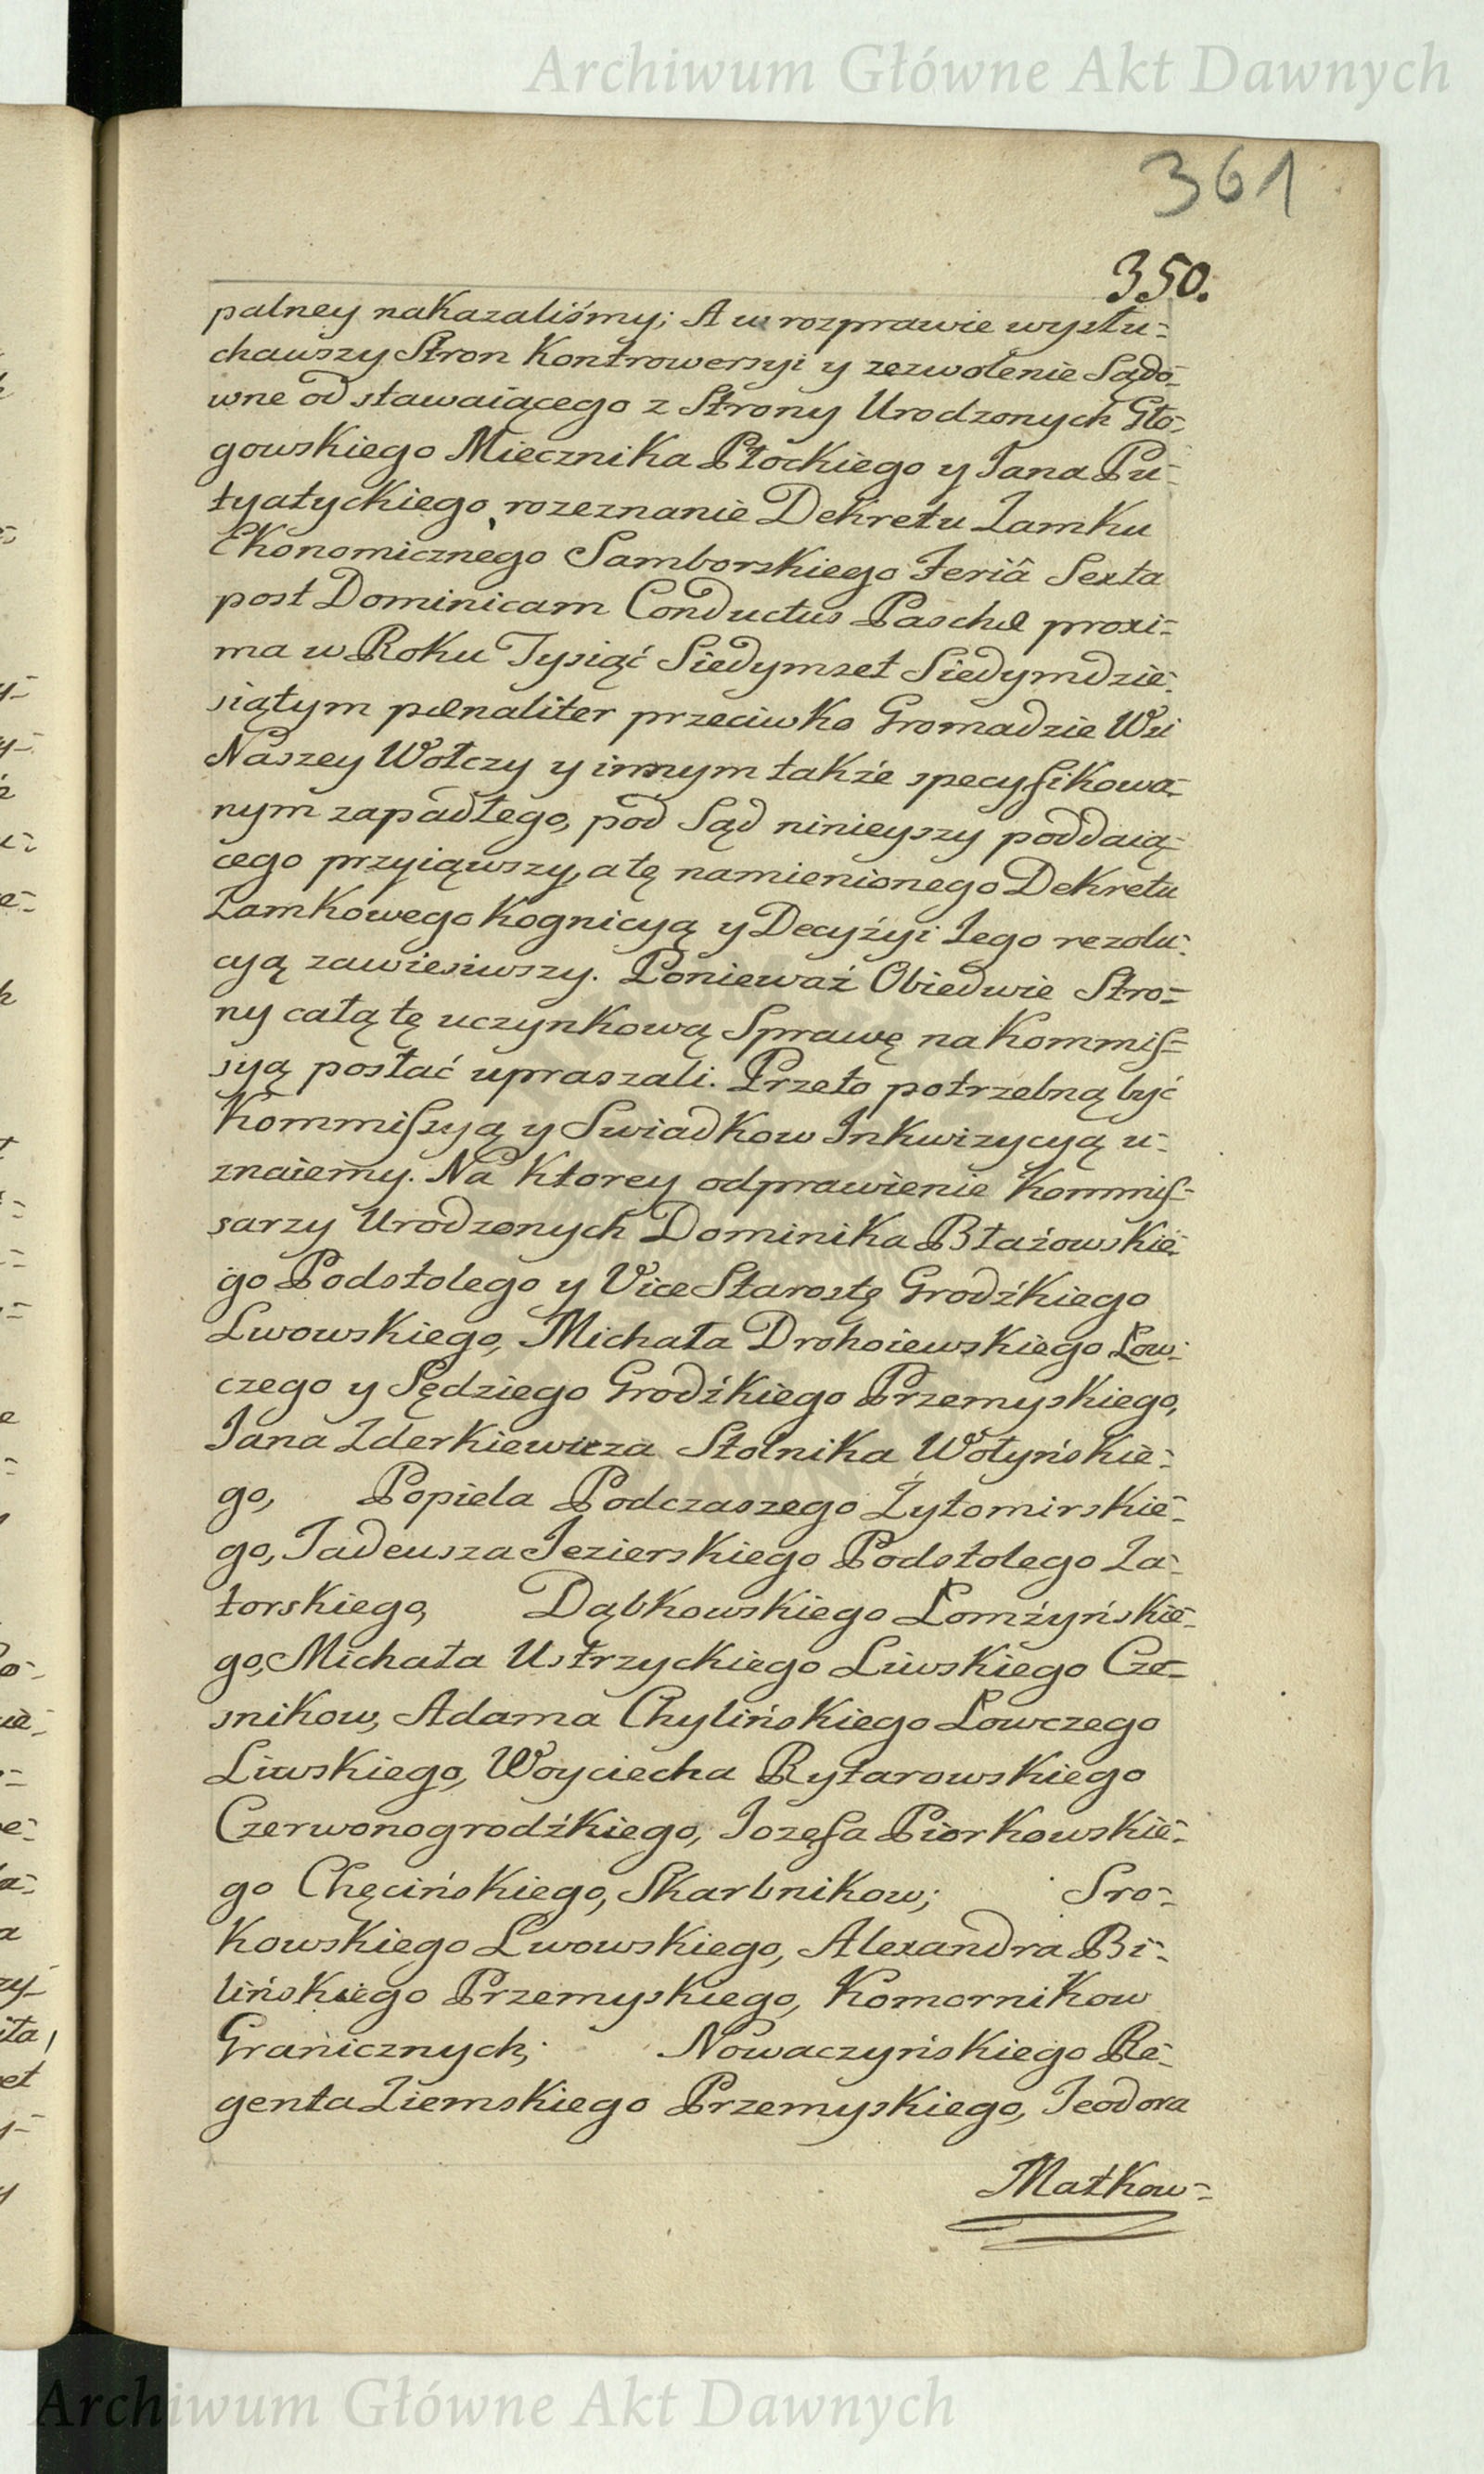 Archiwum Główne Akt Dawnych
361
350.
palney nakazaliśmy; A w rozprawie wysłu-
chawszy Stron Kontrowersyi y zezwolenie Sądo-
wne od stawaiącego z Strony Urodzonych Gło-
gowskiego Miecznika Płockiego y Jana Pu-
tyatyckiego, rozeznanie Dekretu Zamku
Ekonomicznego Samborskiego Feriâ Sexta
post Dominicam Conductus Paschæ proxi-
ma w Roku Tysiąć Siedymset Siedymdzie-
siątym pœnaliter przeciwko Gromadzie Wsi
Naszey Wołczy y innym także specyfikowa-
nym zapadłego, pod Sąd ninieyszy poddaią-
cego przyiąwszy, a tę namienionego Dekretu
Zamkowego Kognicyą y Decyżyi Jego rezolu-
cyą zawiesiwszy. Ponieważ Obiedwie Stro-
ny całą tę uczynkową Sprawę na Kommis-
syą posłać upraszali. Przeto potrzebną być
Kommissyą y Swiadkow Inkwizycyą u-
znaiemy. Na Ktorey odprawienie Kommis-
sarzy Urodzonych Dominika Błażowskie-
go Podstolego y Vice Starostę Grodźkiego
Lwowskiego, Michała Drohoiewskiego Łow-
czego y Sędziego Grodźkiego Przemyskiego,
Jana Zderkiewicza Stolnika Wołyńskie-
go, Popiela Podczaszego Żytomirskie-
go, Tadeusza Jezierskiego Podstolego Za-
torskiego, Dąbkowskiego Łomżyńskie-
go, Michała Ustrzyckiego Liwskiego Cze-
snikow, Adama Chylińskiego Łowczego
Liwskiego, Woyciecha Rytarowskiego
Czerwonogrodźkiego, Jozefa Piorkowskie-
go Chęcińskiego, Skarbnikow; Sro-
kowskiego Lwowskiego, Alexandra Bi-
lińskiego Przemyskiego, Komornikow
Granicznych; Nowaczyńskiego Re-
genta Ziemskiego Przemyskiego, Teodora
Matkow-
Archiwum Główne Akt Dawnych